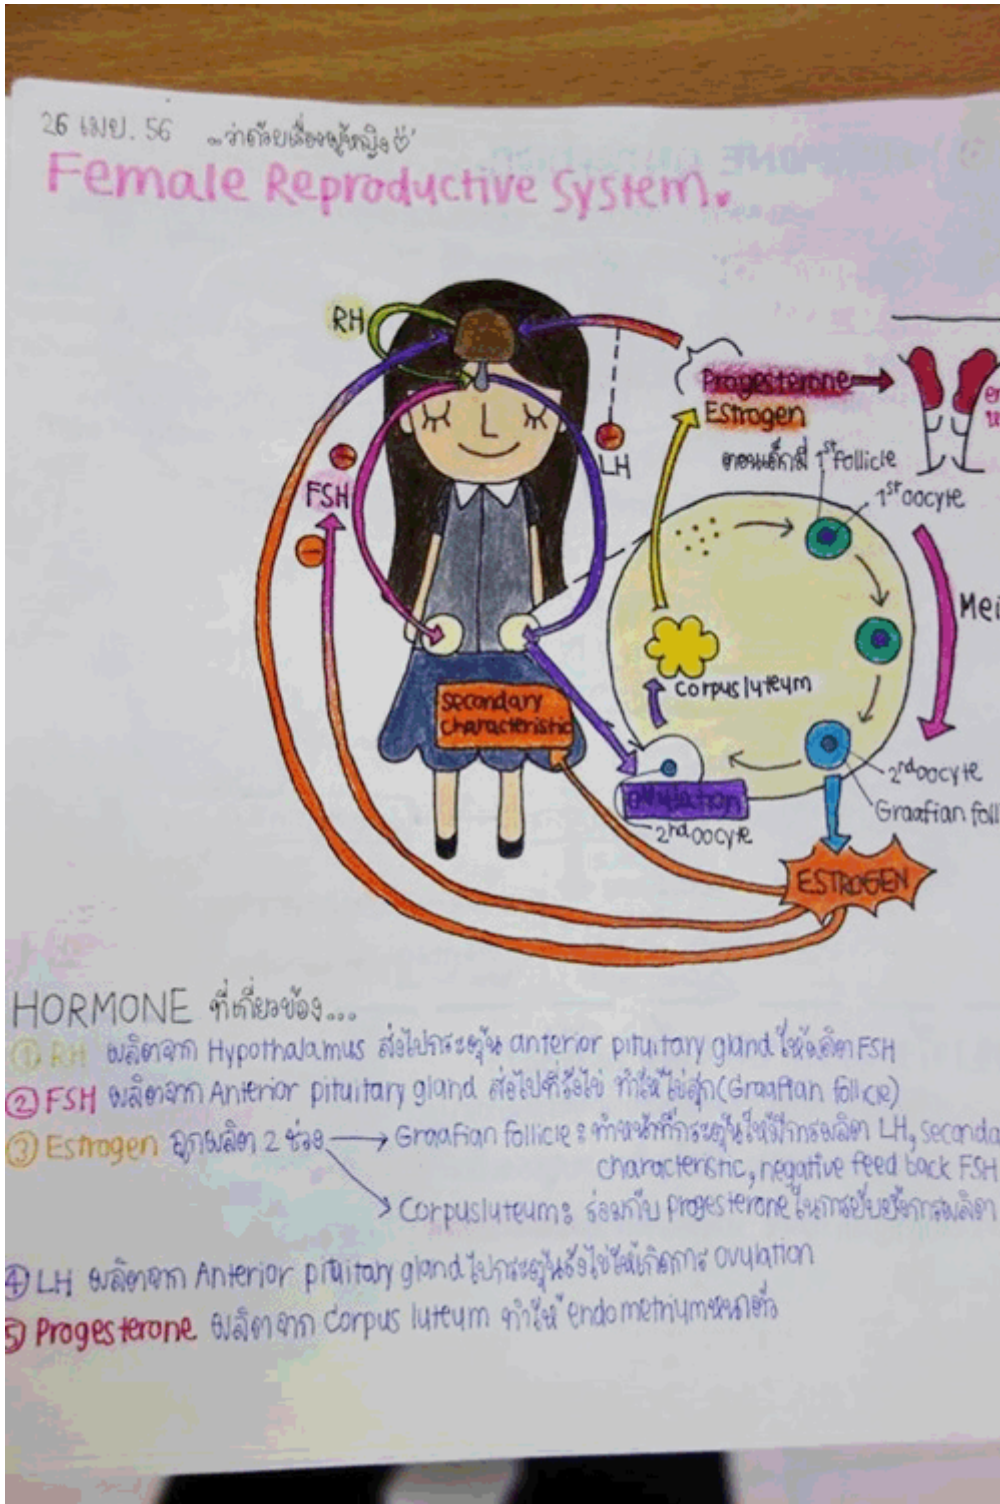 26 เมย. 56 ..ว่าด้วยเรื่องผู้หญิง
Female Reproductive System.
RH
Progesterone
Estrogen
LH
FSH
ตอนเด็กมี 1st follicle
1st oocyte
Mei
corpus luteum
secondary
characteristic
2nd oocyte
Graafian foll
ovulation
2nd oocyte
ESTROGEN
HORMONE ที่เกี่ยวข้อง...
① RH ผลิตจาก Hypothalamus ส่งไปกระตุ้น anterior pituitary gland ให้ผลิต FSH
② FSH ผลิตจาก Anterior pituitary gland ส่งไปที่รังไข่ ทำให้ไข่สุก (Graafian follicle)
③ Estrogen ถูกผลิต 2 ช่วง → Graafian follicle : ทำหน้าที่กระตุ้นให้มีการผลิต LH, seconda
characteristic, negative feed back FSH
→ Corpusluteum : ร่วมกับ progesterone ในการยับยั้งการผลิต
④ LH ผลิตจาก Anterior pituitary gland ไปกระตุ้นรังไข่ให้เกิดการ ovulation
⑤ Progesterone ผลิตจาก Corpus luteum ทำให้ endometrium หนาตัว